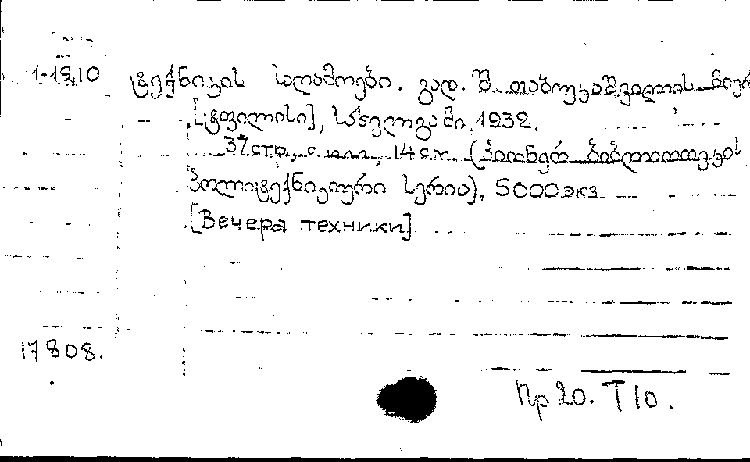 1-18.10 ტექნიკის საღამოები. გად. შ. თაბუკაშვილის მიერ
[ტფილისი], სახელგამი, 1932.
37 стр., с илл., 14 см. (პიონერ ბიბლიოთეკის
პოლიტექნიკური სერია), 5000 экз.
[Вечера техники]
17808.
Пр 20. Т 10.